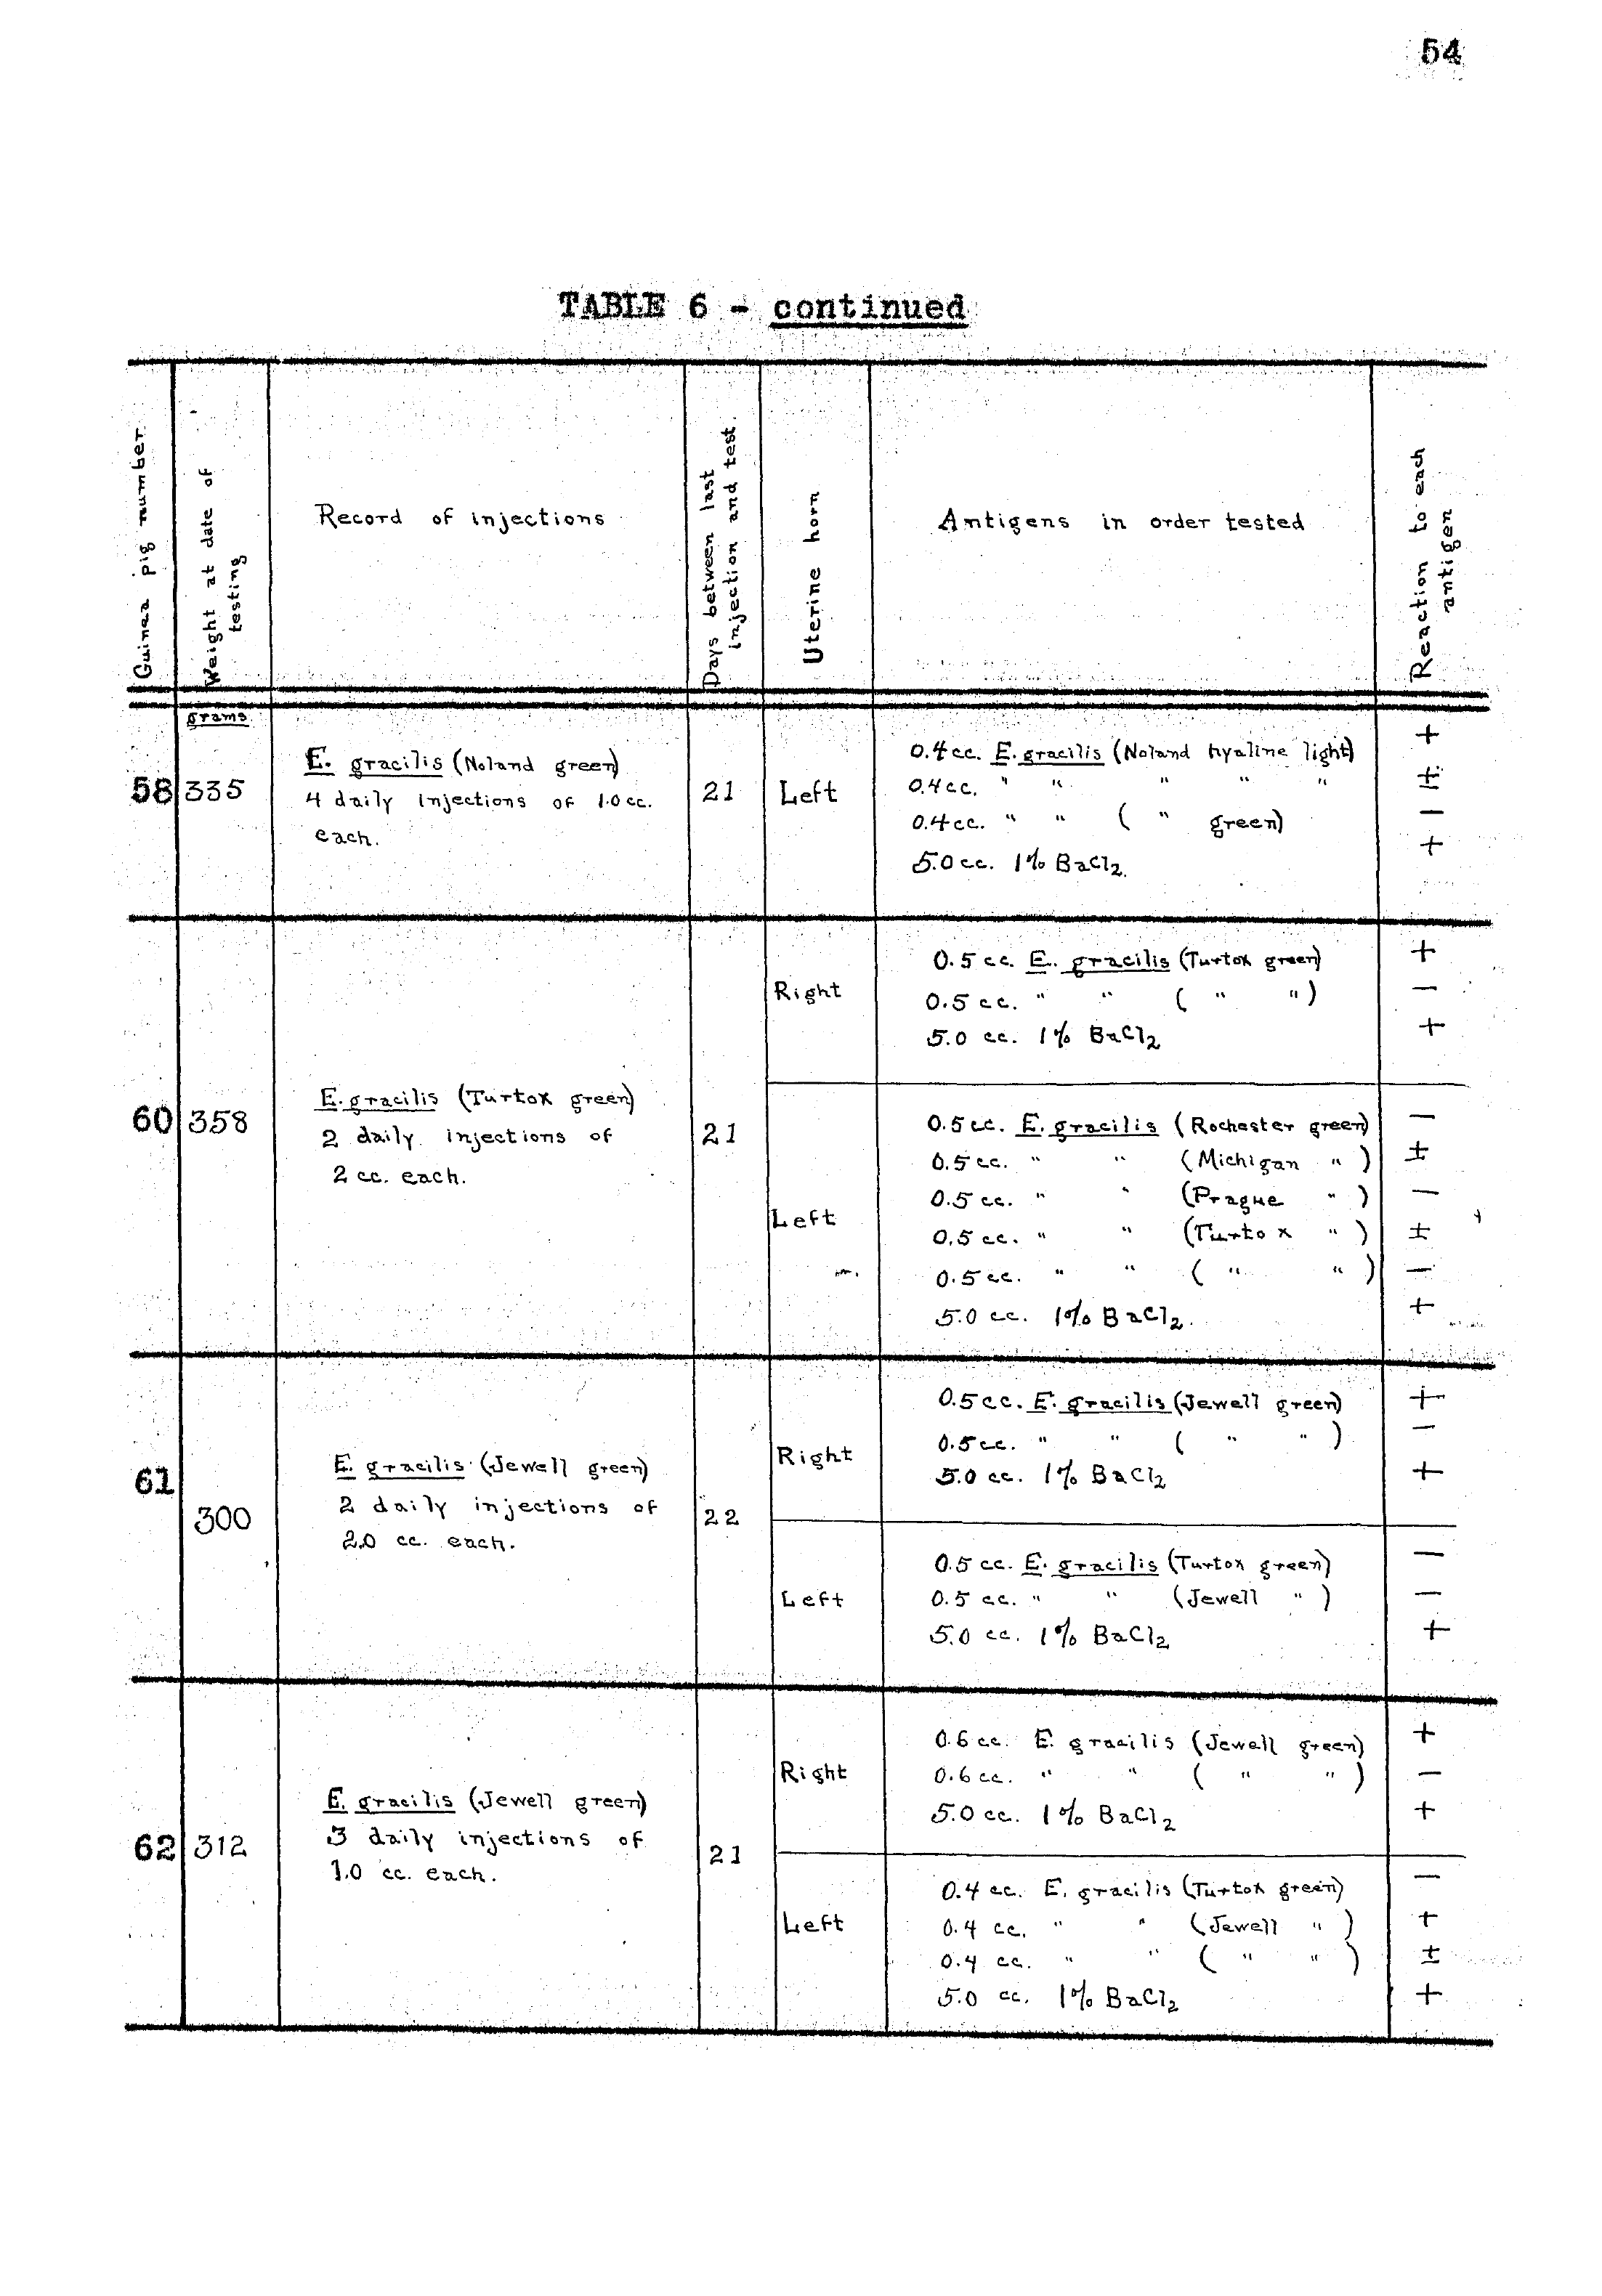 54
TABLE 6 - continued
Guinea pig number
Weight at date of
testing
Record of injections
Days between last
injection and test.
Uterine horn
Antigens in order tested
Reaction to each
antigen
grams
58
335
E. gracilis (Noland green)
4 daily injections of 1.0 cc.
each.
21
Left
0.4 cc. E. gracilis (Noland hyaline light) +
0.4 cc. " " " " " ±
0.4 cc. " " ( " green) −
5.0 cc. 1% BaCl2. +
60
358
E. gracilis (Turtox green)
2 daily injections of
2 cc. each.
21
Right
0.5 cc. E. gracilis (Turtox green) +
0.5 cc. " " ( " ") −
5.0 cc. 1% BaCl2 +
Left
0.5 cc. E. gracilis (Rochester green) −
0.5 cc. " " (Michigan ") ±
0.5 cc. " " (Prague ") −
0.5 cc. " " (Turtox ") ±
0.5 cc. " " ( " ") −
5.0 cc. 1% BaCl2. +
61
300
E. gracilis (Jewell green)
2 daily injections of
2.0 cc. each.
22
Right
0.5 cc. E. gracilis (Jewell green) +
0.5 cc. " " ( " ") −
5.0 cc. 1% BaCl2 +
Left
0.5 cc. E. gracilis (Turtox green) −
0.5 cc. " " (Jewell ") −
5.0 cc. 1% BaCl2 +
62
312
E. gracilis (Jewell green)
3 daily injections of
1.0 cc. each.
21
Right
0.6 cc. E. gracilis (Jewell green) +
0.6 cc. " " ( " ") −
5.0 cc. 1% BaCl2 +
Left
0.4 cc. E. gracilis (Turtox green) −
0.4 cc. " " (Jewell ") +
0.4 cc. " " ( " ") ±
5.0 cc. 1% BaCl2 +